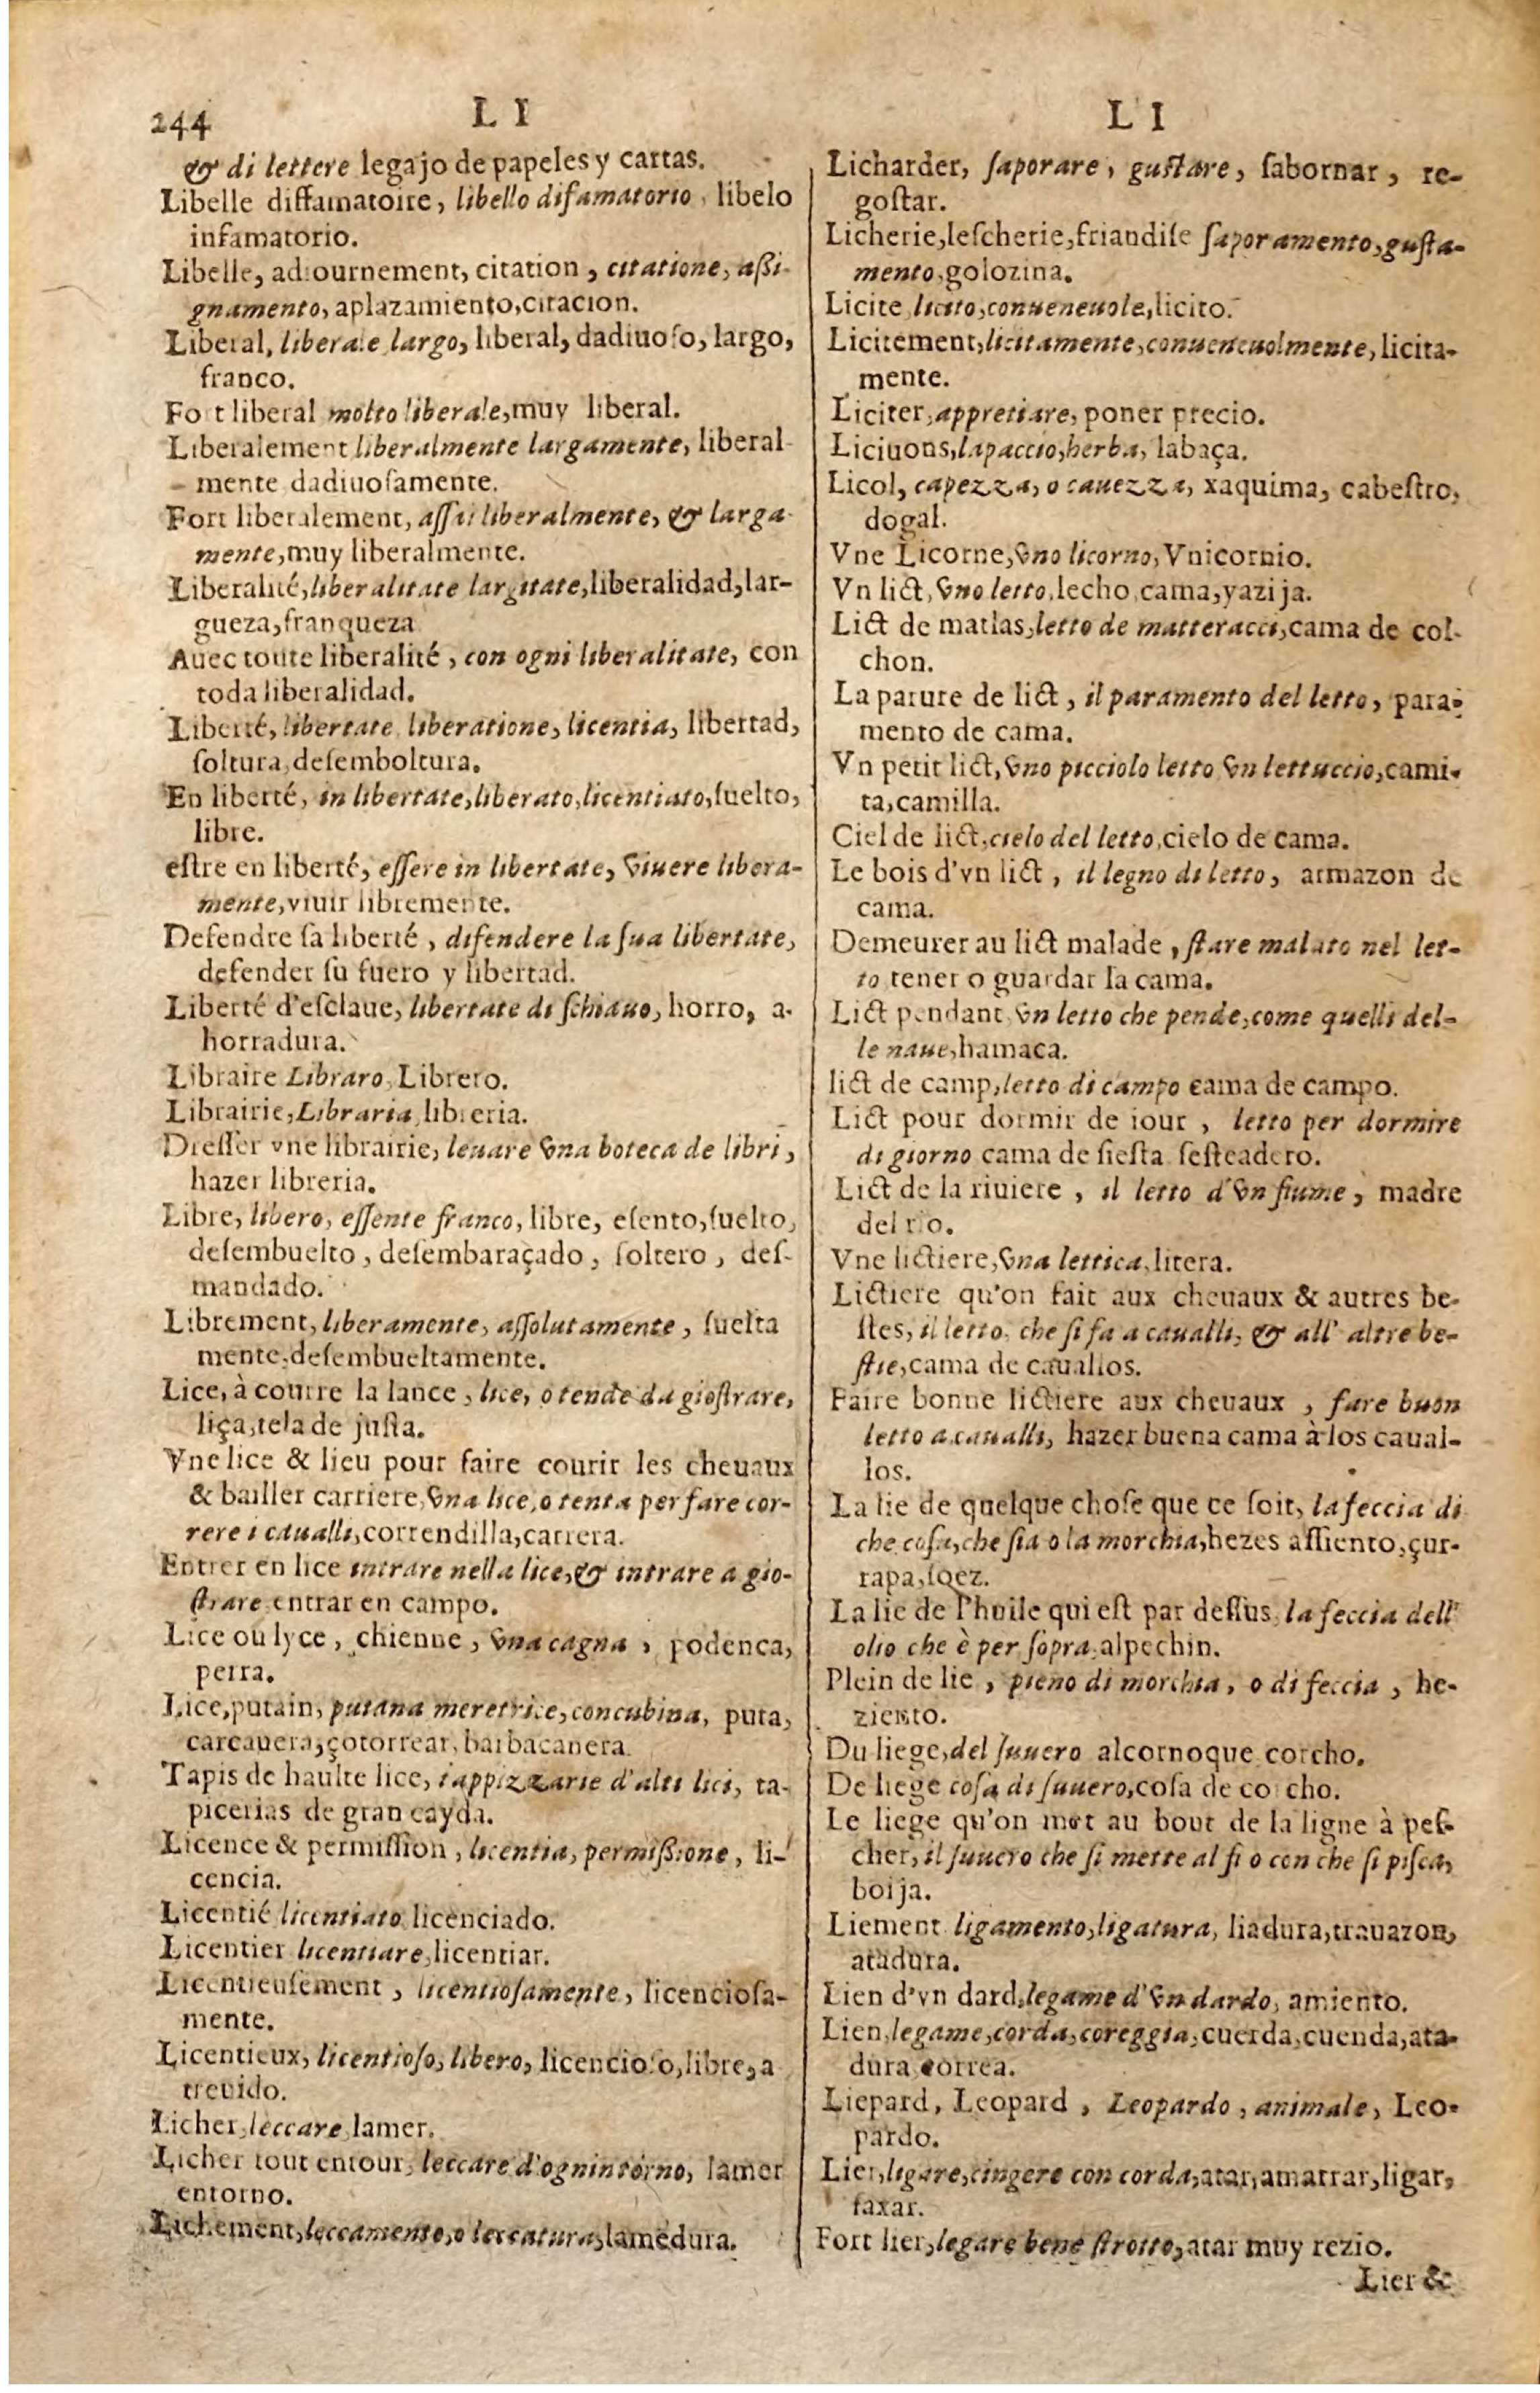 244
L I
& di lettere legajo de papeles y cartas.
Libelle diffamatoire, libello difamatorio, libelo
infamatorio.
Libelle, adiournement, citation, citatione, aßi-
gnamento, aplazamiento, citacion.
Liberal, liberale largo, liberal, dadiuoſo, largo,
franco.
Fo t liberal molto liberale, muy liberal.
Liberalement liberalmente largamente, liberal-
mente dadiuoſamente.
Fort liberalement, aſſai liberalmente, & larga-
mente, muy liberalmente.
Liberalité, liberalitate largitate, liberalidad, lar-
gueza, franqueza
Auec toute liberalité, con ogni liberalitate, con
toda liberalidad.
Liberté, libertate liberatione, licentia, libertad,
ſoltura, deſemboltura.
En liberté, in libertate, liberato, licentiato, ſuelto,
libre.
eſtre en liberté, eſſere in libertate, viuere libera-
mente, viuir libremente.
Defendre ſa liberté, difendere la ſua libertate,
defender ſu fuero y libertad.
Liberté d'eſclaue, libertate di ſchiauo, horro, a-
horradura.
Libraire Libraro, Librero.
Librairie, Libraria, libreria.
Dreſſer vne librairie, leuare vna boteca de libri,
hazer libreria.
Libre, libero, eſſente franco, libre, eſento, ſuelto,
deſembuelto, deſembaraçado, ſoltero, deſ-
mandado.
Librement, liberamente, aſſolutamente, ſuelta
mente, deſembueltamente.
Lice, à courre la lance, lice, o tende da gioſtrare,
liça, tela de juſta.
Vne lice & lieu pour faire courir les cheuaux
& bailler carriere, vna lice, o tenta per fare cor-
rere i caualli, correndilla, carrera.
Entrer en lice intrare nella lice, & intrare a gio-
ſtrare entrar en campo.
Lice ou lyce, chienne, vna cagna, podenca,
perra.
Lice, putain, putana meretrice, concubina, puta,
carcauera, çotorrear, barbacanera.
Tapis de haulte lice, tappizzarie d'alti lici, ta-
picerias de gran cayda.
Licence & permiſſion, licentia, permißione, li-
cencia.
Licentié licentiato licenciado.
Licentier licentiare, licentiar.
Licentieuſement, licentioſamente, licencioſa-
mente.
Licentieux, licentioſo, libero, licencioſo, libre, a
treuido.
Licher, leccare, lamer.
Licher tout entour, leccare d'ognintorno, lamer
entorno.
Lichement, leccamento, o leccatura, lamedura.
L I
Licharder, ſaporare, guſtare, ſabornar, re-
goſtar.
Licherie, leſcherie, friandiſe ſaporamento, guſta-
mento, golozina.
Licite licito, conueneuole, licito.
Licitement, licitamente, conueneuolmente, licita-
mente.
Liciter, appretiare, poner precio.
Liciuons, lapaccio, herba, labaça.
Licol, capezza, o cauezza, xaquima, cabeſtro,
dogal.
Vne Licorne, vno licorno, Vnicornio.
Vn lict, vno letto, lecho, cama, yazija.
Lict de matlas, letto de matteracci, cama de col-
chon.
La parure de lict, il paramento del letto, para-
mento de cama.
Vn petit lict, vno picciolo letto vn lettuccio, cami-
ta, camilla.
Ciel de lict, cielo del letto, cielo de cama.
Le bois d'vn lict, il legno di letto, armazon de
cama.
Demeurer au lict malade, ſtare malato nel let-
to tener o guardar la cama.
Lict pendant, vn letto che pende, come quelli del-
le naue, hamaca.
lict de camp, letto di campo cama de campo.
Lict pour dormir de iour, letto per dormire
di giorno cama de ſieſta ſeſteadero.
Lict de la riuiere, il letto d'vn fiume, madre
del rio.
Vne lictiere, vna lettica, litera.
Lictiere qu'on fait aux cheuaux & autres be-
ſtes, il letto, che ſi fa a caualli, & all' altre be-
ſtie, cama de cauallos.
Faire bonne lictiere aux cheuaux, fare buon
letto a caualli, hazer buena cama à los caual-
los.
La lie de quelque choſe que ce ſoit, la feccia di
che coſa, che ſia o la morchia, hezes aſſiento, çur-
rapa, ſoez.
La lie de l'huile qui eſt par deſſus, la feccia dell'
olio che è per ſopra, alpechin.
Plein de lie, pieno di morchia, o di feccia, he-
ziento.
Du liege, del ſuuero alcornoque corcho.
De liege coſa di ſuuero, coſa de corcho.
Le liege qu'on met au bout de la ligne à peſ-
cher, il ſuuero che ſi mette al fi o con che ſi piſca,
boija.
Liement ligamento, ligatura, liadura, trauazon,
atadura.
Lien d'vn dard, legame d'vn dardo, amiento.
Lien, legame, corda, coreggia, cuerda, cuenda, ata-
dura correa.
Liepard, Leopard, Leopardo, animale, Leo-
pardo.
Lier, ligare, cingere con corda, atar, amarrar, ligar,
faxar.
Fort lier, legare bene ſtrotto, atar muy rezio.
Lier &